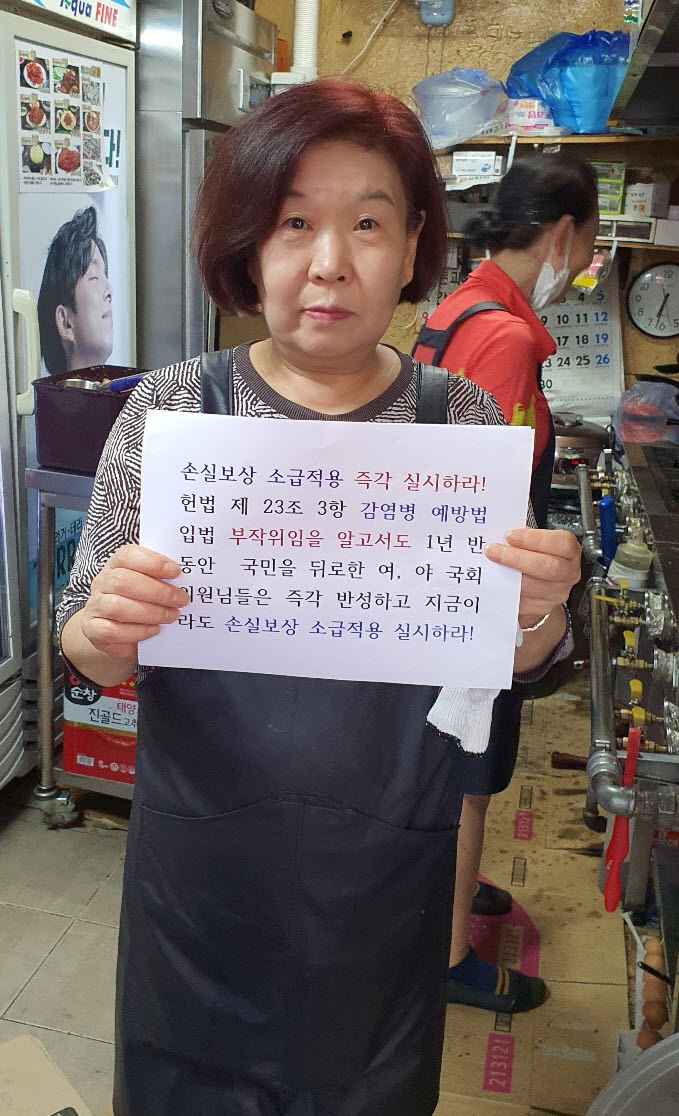 Aqua FINE
손실보상 소급적용 즉각 실시하라!
헌법 제 23조 3항 감염병 예방법
입법 부작위임을 알고서도 1년 반
동안 국민을 뒤로한 여, 야 국회
의원님들은 즉각 반성하고 지금이
라도 손실보상 소급적용 실시하라!
4 5
10 11 12
17 18 19
23 24 25 26
30
순창
태양
진골드고추
213121
213121